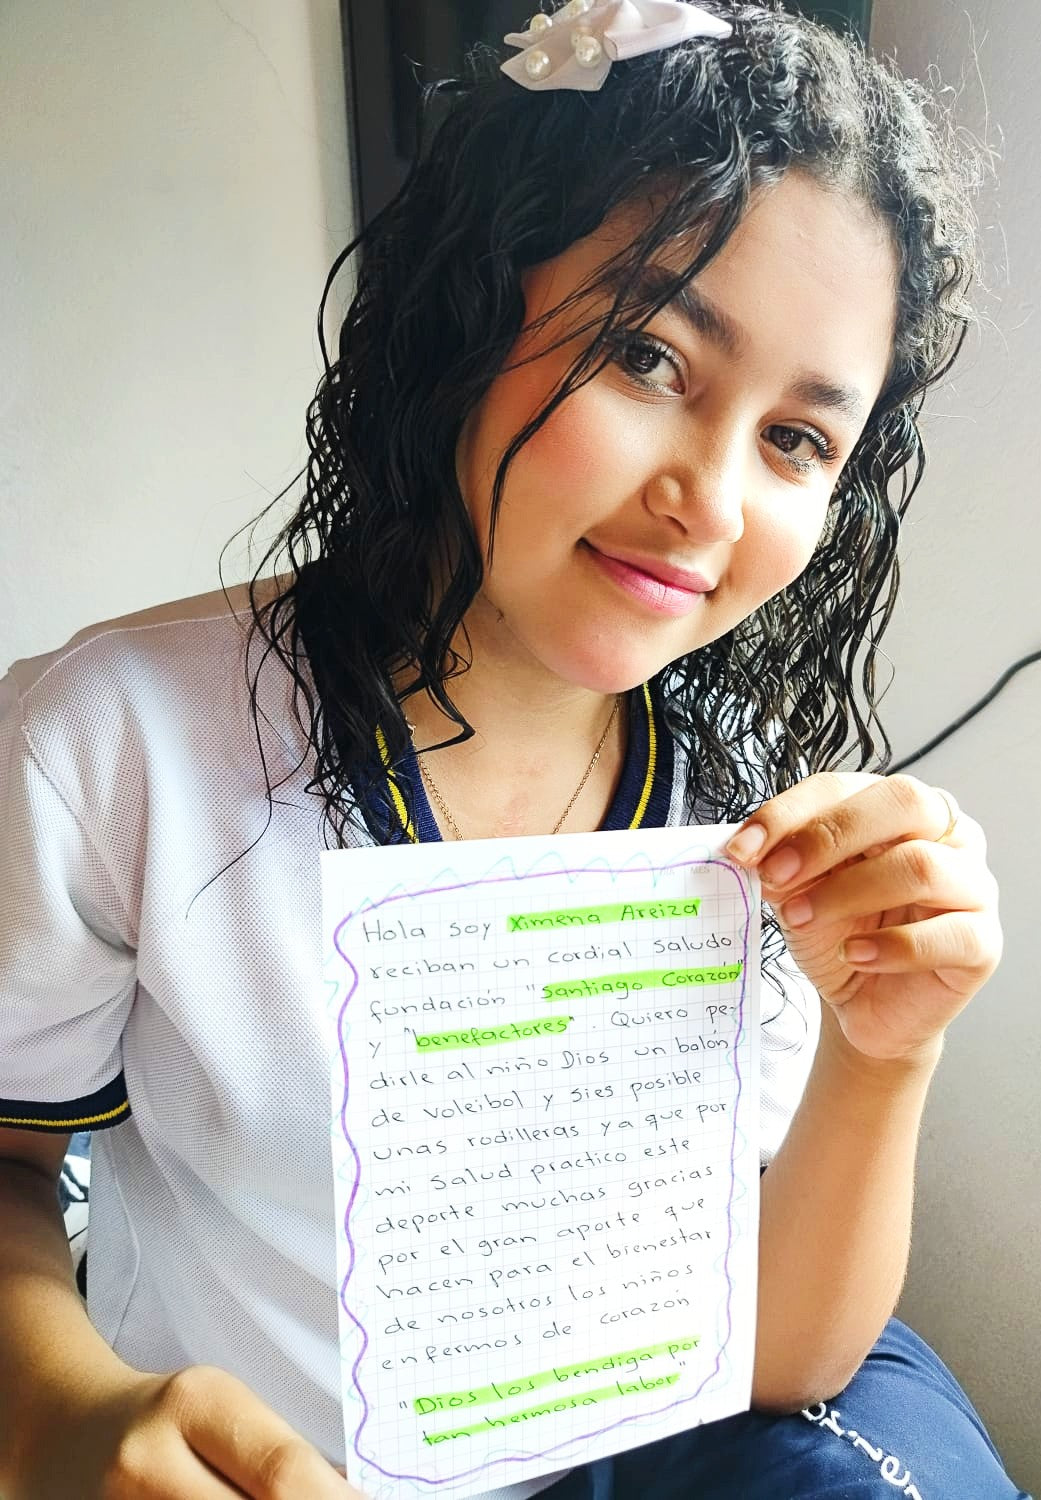 MES
Hola soy Ximena Areiza
reciban un cordial saludo
fundación "Santiago Corazón"
y "benefactores". Quiero pe-
dirle al niño Dios un balón
de voleibol y sies posible
unas rodilleras ya que por
mi salud practico este
deporte muchas gracias
por el gran aporte que
hacen para el bienestar
de nosotros los niños
enfermos de corazón
"Dios los bendiga por
tan hermosa labor"